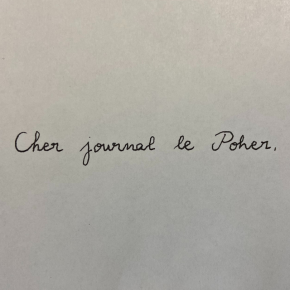 Cher journal le Poher,